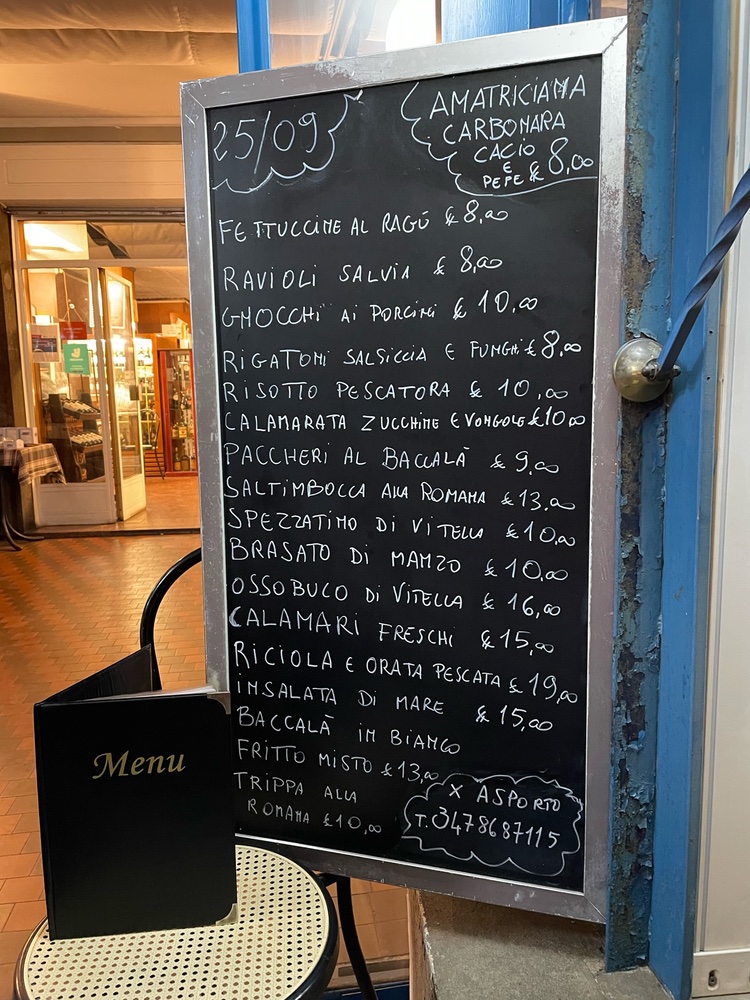 25/09
AMATRICIANA
CARBONARA
CACIO
E
PEPE € 8,00
FETTUCCINE AL RAGÙ € 8,00
RAVIOLI SALVIA € 8,00
GNOCCHI AI PORCINI € 10,00
RIGATONI SALSICCIA E FUNGHI € 8,00
RISOTTO PESCATORA € 10,00
CALAMARATA ZUCCHINE E VONGOLE € 10,00
PACCHERI AL BACCALÀ € 9,00
SALTIMBOCCA ALLA ROMANA € 13,00
SPEZZATINO DI VITELLA € 10,00
BRASATO DI MANZO € 10,00
OSSOBUCO DI VITELLA € 16,00
CALAMARI FRESCHI € 15,00
RICIOLA E ORATA PESCATA € 19,00
INSALATA DI MARE € 15,00
BACCALÀ IN BIANCO
FRITTO MISTO € 13,00
TRIPPA ALLA
ROMANA € 10,00
X ASPORTO
T. 3478687115
Menu